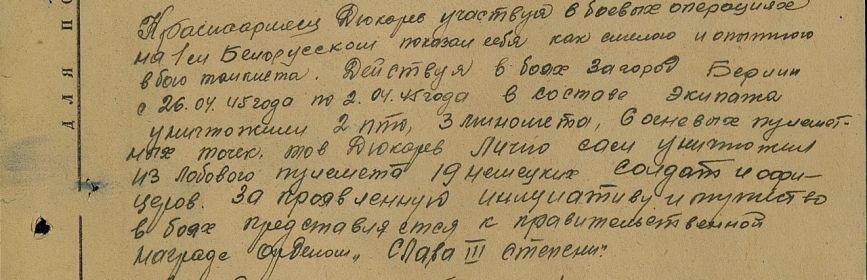 Красноармеец Дюкарев участвуя в боевых операциях
на 1ом Белорусском показал себя как смелого и опытного
в бою танкиста. Действуя в боях за город Берлин
с 26.04.45 года по 2.04.45 года в составе экипажа
уничтожили 2 пто, 3 миномета, 6 огневых пулемет-
ных точек. тов Дюкарев Лично сам уничтожил
из лобового пулемета 19 немецких солдат и офи-
церов. За проявленную инициативу и мужество
в боях представляется к правительственной
награде орденом „Слава III степени".
ДЛЯ ПО